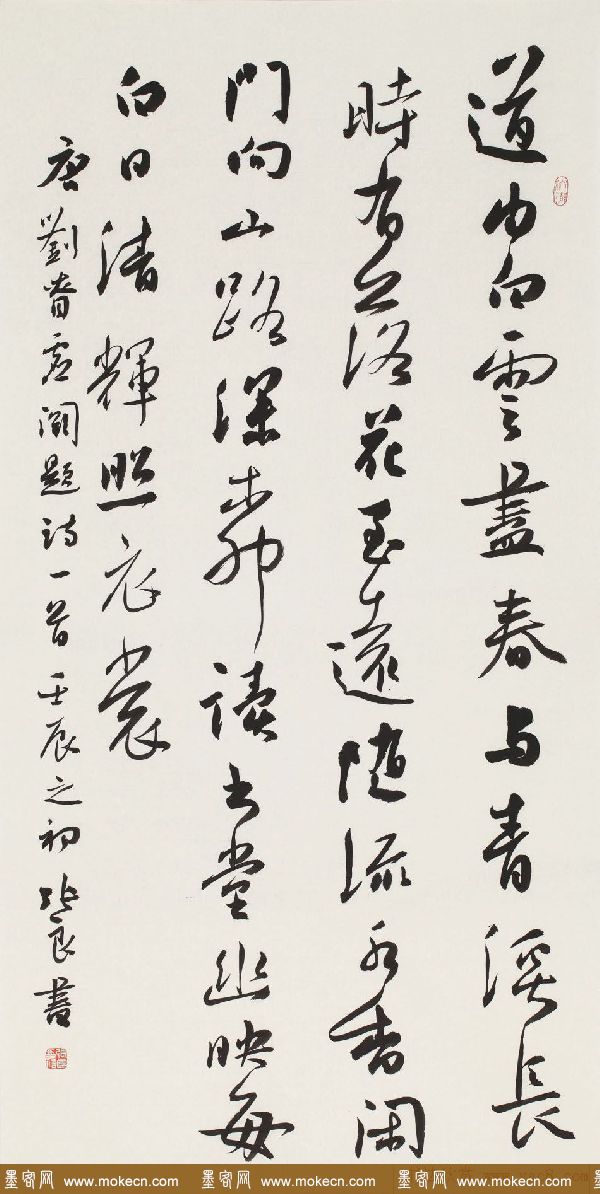 道由白雲盡春与青溪長
時有落花至遠随流水香闲
門向山路深柳讀书堂幽映每
白日清輝照衣裳
唐劉眘虚闕題詩一首壬辰之初張良書
墨客网 www.mokecn.com 墨客网 www.mokecn.com 墨客网 www.mokecn.com